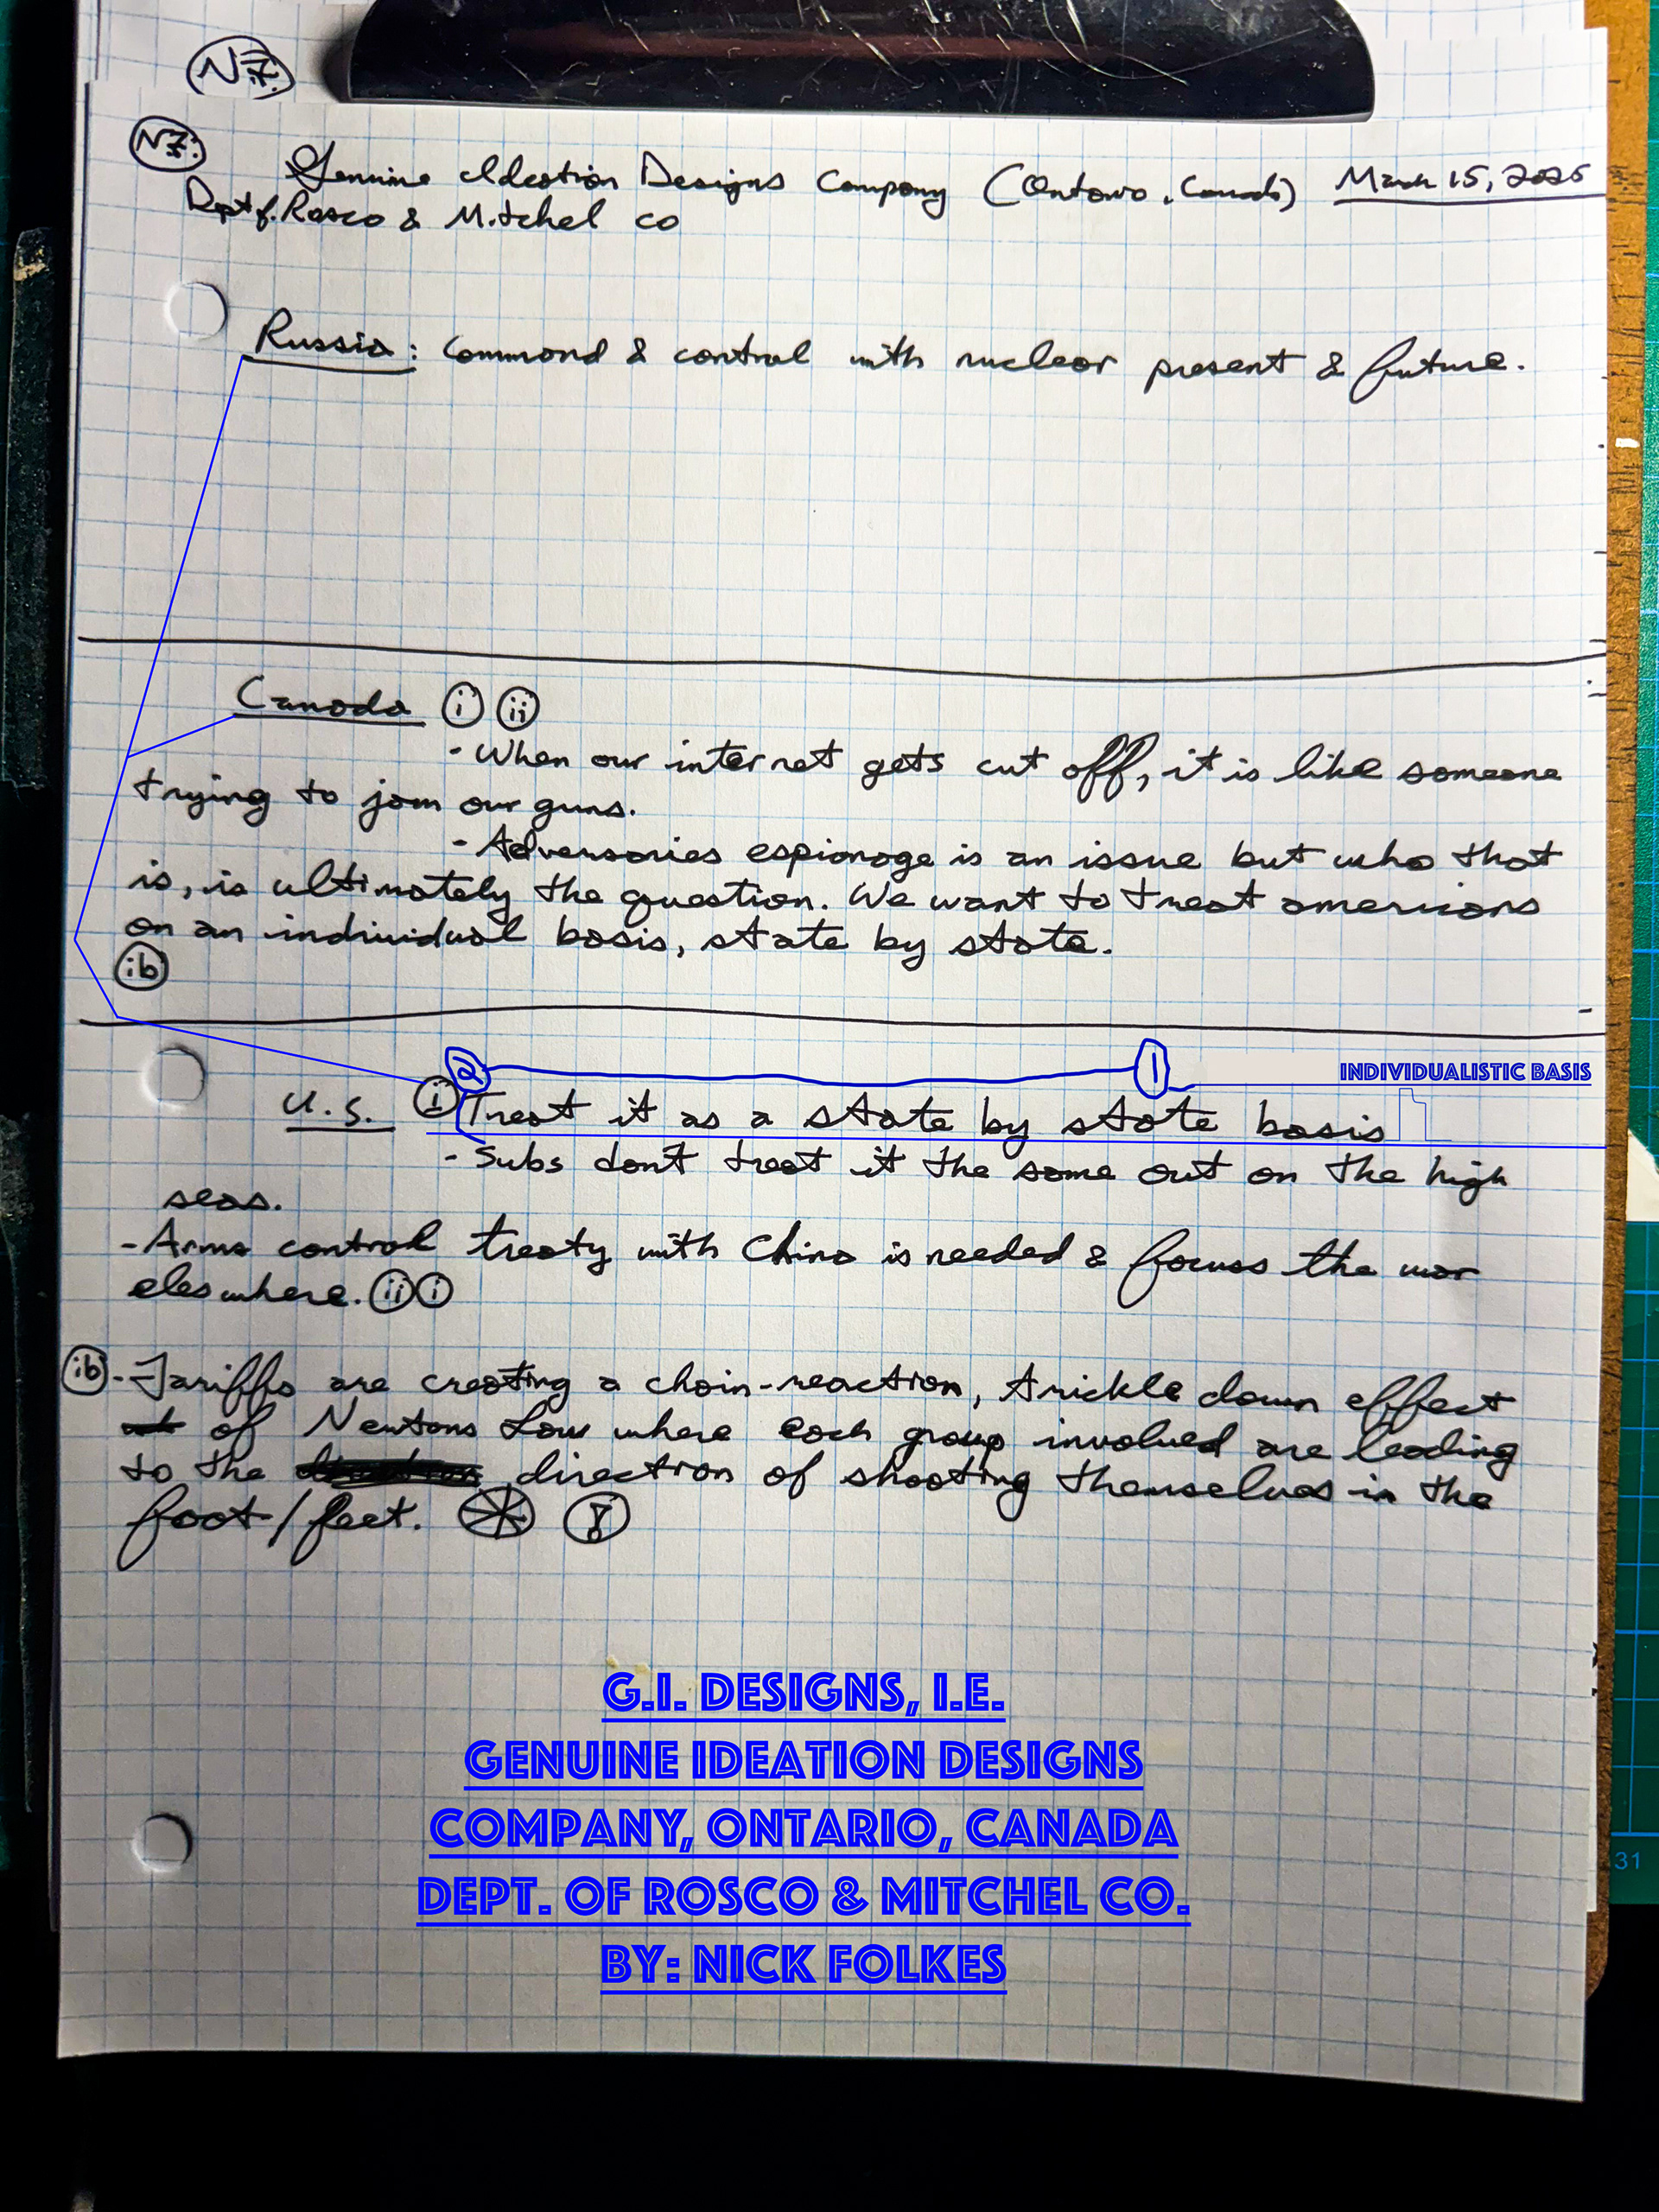 N7:
N7:
Genuine Ideation Designs Company (Ontario, Canada) March 15, 2025
Dept of. Rosco & Mitchel co
Russia: Command & control with nuclear present & future.
Canada i ii
- When our internet gets cut off, it is like someone
trying to jam our guns.
- Adversaries espionage is an issue but who that
is, is ultimately the question. We want to treat americans
on an individual basis, state by state.
ib
2 1
INDIVIDUALISTIC BASIS
U.S. i Treat it as a state by state basis
- Subs dont treat it the same out on the high
seas.
- Arms control treaty with China is needed & focuss the war
eleswhere. ii i
ib - Tariffs are creating a chain-reaction, trickle down effect
of Newtons Law where each group involved are leading
to the direction of shooting themselves in the
foot/feet.
G.I. DESIGNS, I.E.
GENUINE IDEATION DESIGNS
COMPANY, ONTARIO, CANADA
DEPT. OF ROSCO & MITCHEL CO.
BY: NICK FOLKES
31